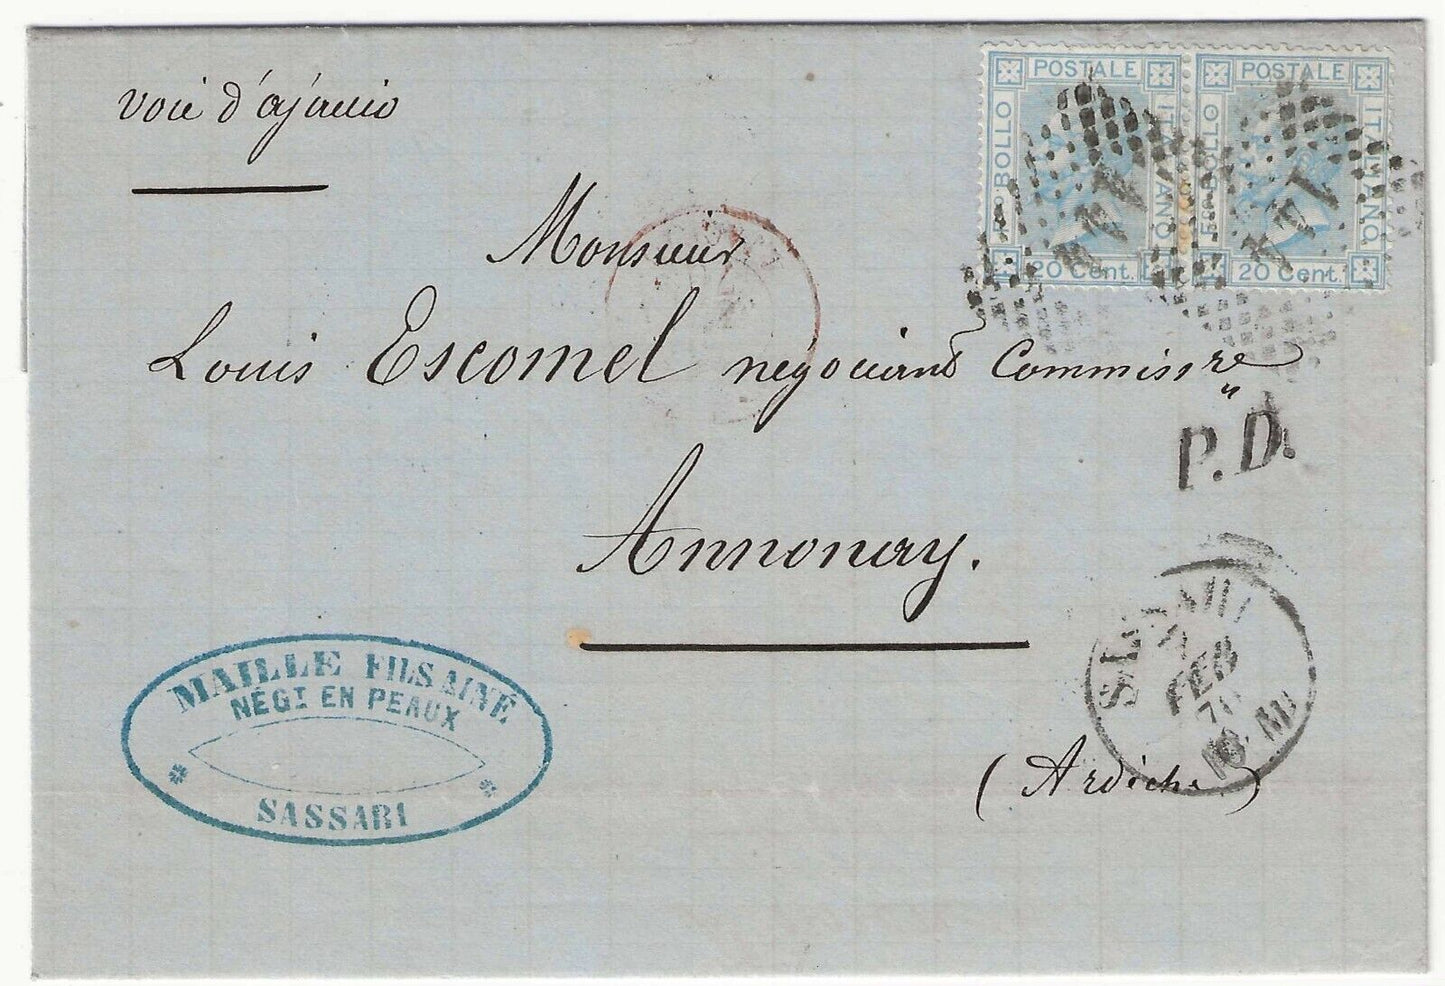 voie d'ajaccio
POSTALE
BOLLO
ITALIANO
20 Cent.
POSTALE
FCO BOLLO
ITALIANO
20 Cent.
Monsieur
Louis Escomel négociant Commissre
P.D.
Annonay.
(Ardèche)
FEB
70
10 M
MAILLE FILS AINÉ
NÉGT EN PEAUX
SASSARI